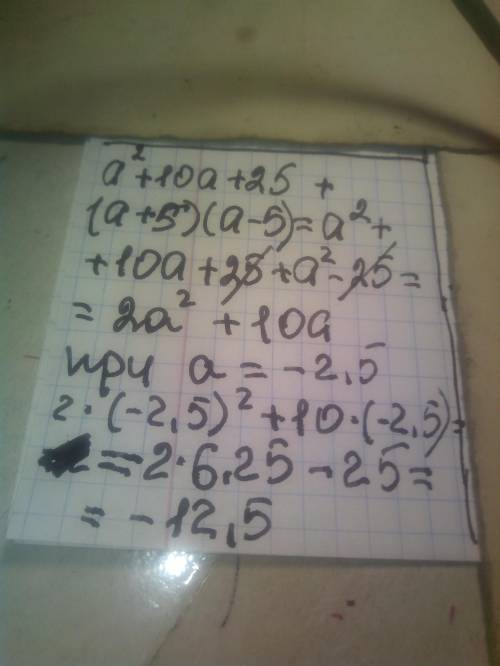 a²+10a+25 +
(a+5)(a-5)=a²+
+10a+25+a²-25=
= 2a² + 10a
при a = -2,5
2·(-2,5)²+10·(-2,5)=
=2·6,25-25=
= -12,5